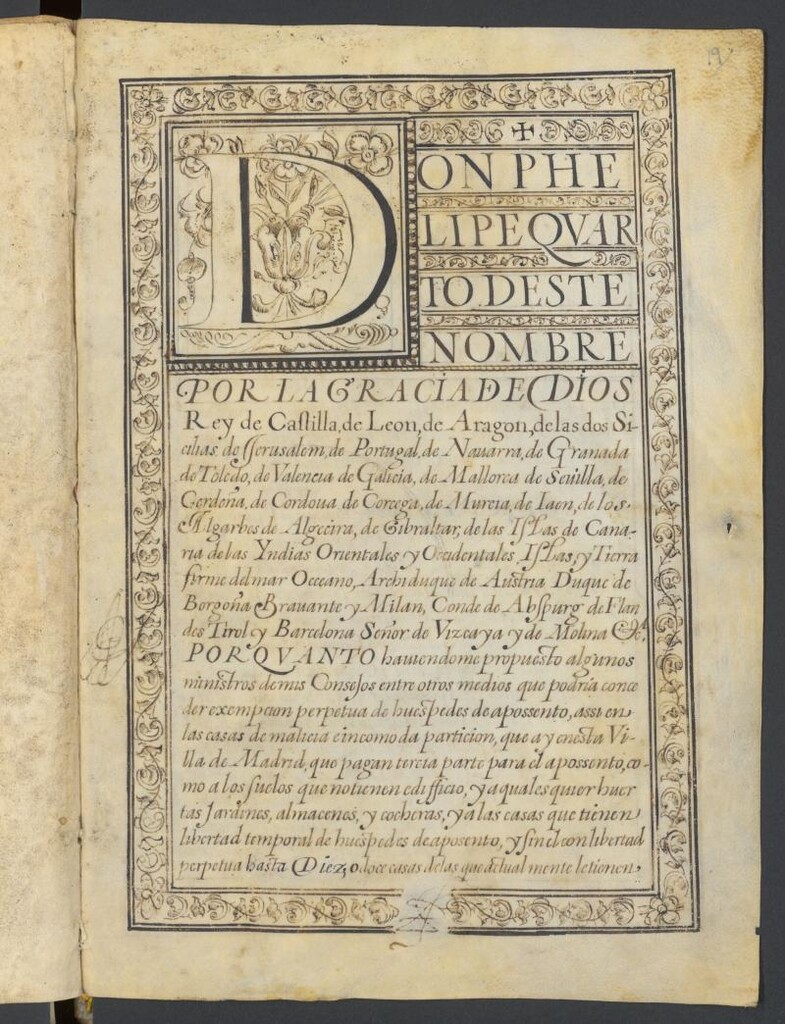 19
DON PHE
LIPE QVAR
TO DESTE
NOMBRE
POR LA GRACIA DE DIOS
Rey de Castilla, de Leon, de Aragon, de las dos Si-
cilias de Jerusalem, de Portugal, de Nauarra, de Granada
de Toledo, de Valencia de Galicia, de Mallorca de Seuilla, de
Cerdeña, de Cordoua de Corcega, de Murcia, de Iaen, de los
Algarbes de Algecira, de Gibraltar, de las Islas de Cana-
ria de las Yndias Orientales y Occidentales, Islas, y Tierra
firme del mar Occeano, Archiduque de Austria Duque de
Borgoña Brauante y Milan, Conde de Abspurg de Flan
des Tirol y Barcelona Señor de Vizcaya y de Molina &c.ª
POR QVANTO hauiendome propuesto algunos
ministros de mis Consejos entre otros medios que podria conce
der exempcion perpetua de huespedes de apossento, assi en
las casas de malicia e incomoda particion, que ay en esta Vi-
lla de Madrid, que pagan tercia parte para el apossento, co-
mo a los suelos que no tienen edifficio, y a qualesquier huer
tas Jardines, almacenes, y cocheras, y a las casas que tienen
libertad temporal de huespedes de aposento, y sin el con libertad
perpetua hasta Diez, o doce casas de las que actual mente le tienen,